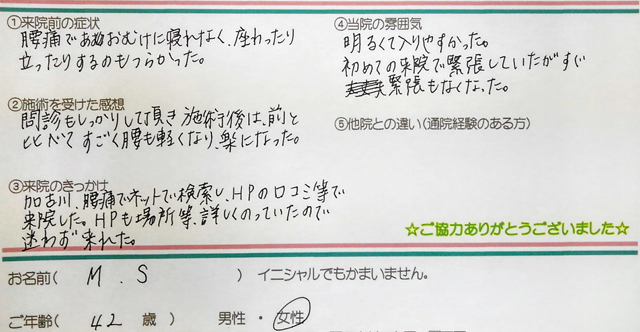 ①来院前の症状
腰痛であおむけに寝れなく、座わったり
立ったりするのもつらかった。
②施術を受けた感想
問診もしっかりして頂き施術後は、前と
比べてすごく腰も軽くなり、楽になった。
③来院のきっかけ
加古川、腰痛でネットで検索し、HPの口コミ等で
来院した。HPも場所等、詳しくのっていたので
迷わず来れた。
④当院の雰囲気
明るくて入りやすかった。
初めての来院で緊張していたがすぐ
緊張もなくなった。
⑤他院との違い(通院経験のある方)
☆ご協力ありがとうございました☆
お名前( M.S ) イニシャルでもかまいません。
ご年齢( 42 歳 ) 男性・女性